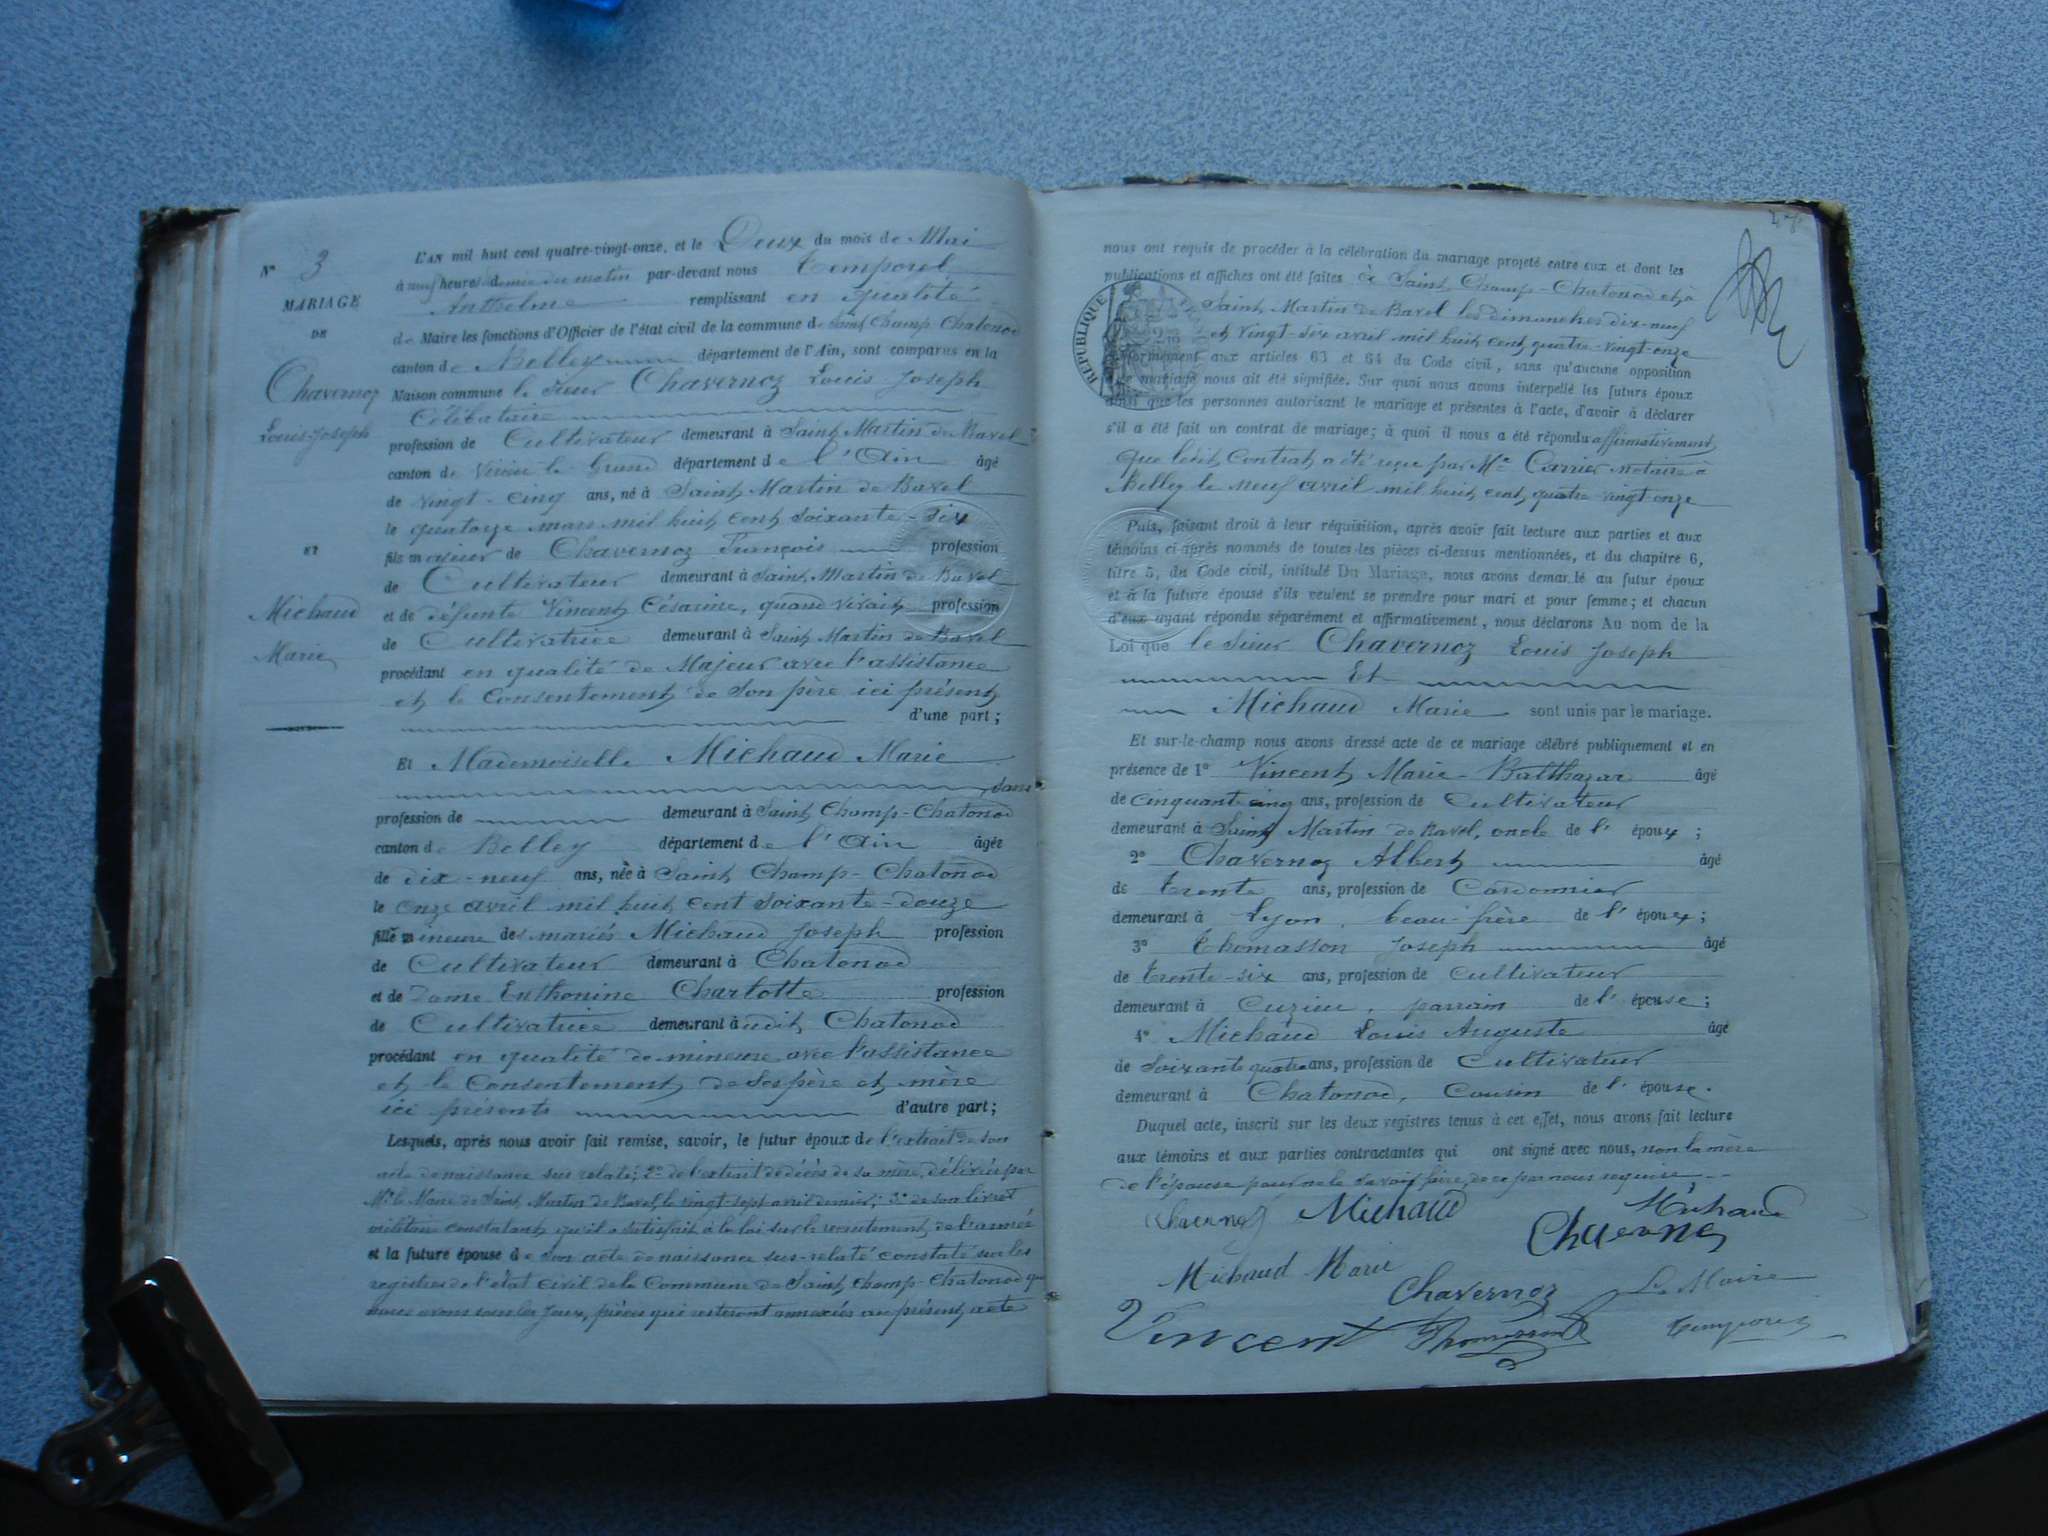 N° 3
MARIAGE
DE
Chavernoz
Louis Joseph
ET
Michaud
Marie
L'AN mil huit cent quatre-vingt-onze, et le Deux du mois de Mai
à neuf heures demie du matin par-devant nous Temporel
Anthelme remplissant en qualité
de Maire les fonctions d'Officier de l'état civil de la commune de Saint Champ Chatonod
canton de Belley département de l'Ain, sont comparus en la
Maison commune le sieur Chavernoz Louis Joseph
Célibataire
profession de Cultivateur demeurant à Saint Martin de Bavel
canton de Virieu le Grand département de l'Ain âgé
de vingt-cinq ans, né à Saint Martin de Bavel
le quatorze mars mil huit cent soixante-six
fils majeur de Chavernoz François profession
de Cultivateur demeurant à Saint Martin de Bavel
et de défunte Vincent Césarine, quand vivait profession
de Cultivatrice demeurant à Saint Martin de Bavel
procédant en qualité de Majeur avec l'assistance
et le Consentement de son père ici présent
d'une part;
Et Mademoiselle Michaud Marie
sans
profession de demeurant à Saint Champ-Chatonod
canton de Belley département de l'Ain âgée
de dix-neuf ans, née à Saint Champ-Chatonod
le onze avril mil huit cent soixante-douze
fille mineure des mariés Michaud Joseph profession
de Cultivateur demeurant à Chatonod
et de Dame Enthonine Charlotte profession
de Cultivatrice demeurant audit Chatonod
procédant en qualité de mineure avec l'assistance
et le Consentement de ses père et mère
ici présents d'autre part;
Lesquels, après nous avoir fait remise, savoir, le futur époux de l'extrait de son
acte de naissance sus relaté; 2° de l'extrait de décès de sa mère, délivrés par
Mr le Maire de Saint Martin de Bavel, le vingt-sept avril dernier; 3° de son livret
militaire constatant qu'il a satisfait à la loi sur le recrutement de l'armée
et la future épouse de son acte de naissance sus-relaté constaté sur les
registres de l'état civil de la Commune de Saint Champ-Chatonod que
nous avons sous les yeux, pièces qui resteront annexées au présent acte
47
nous ont requis de procéder à la célébration du mariage projeté entre eux et dont les
publications et affiches ont été faites à Saint Champ-Chatonod et à
Saint Martin de Bavel les dimanches dix-neuf
et vingt-six avril mil huit cent quatre-vingt-onze
RÉPUBLIQUE
conformément aux articles 63 et 64 du Code civil, sans qu'aucune opposition
mariage nous ait été signifiée. Sur quoi nous avons interpellé les futurs époux
ainsi que les personnes autorisant le mariage et présentes à l'acte, d'avoir à déclarer
s'il a été fait un contrat de mariage; à quoi il nous a été répondu affirmativement,
que ledit Contrat a été reçu par Me Carrier notaire à
Belley le neuf avril mil huit cent quatre-vingt-onze
Puis, faisant droit à leur réquisition, après avoir fait lecture aux parties et aux
témoins ci-après nommés de toutes les pièces ci-dessus mentionnées, et du chapitre 6,
titre 5, du Code civil, intitulé Du Mariage, nous avons demandé au futur époux
et à la future épouse s'ils veulent se prendre pour mari et pour femme; et chacun
d'eux ayant répondu séparément et affirmativement, nous déclarons Au nom de la
Loi que le sieur Chavernoz Louis Joseph
Et
Michaud Marie sont unis par le mariage.
Et sur-le-champ nous avons dressé acte de ce mariage célébré publiquement et en
présence de 1° Vincent Marie-Balthazar âgé
de cinquante cinq ans, profession de Cultivateur
demeurant à Saint Martin de Bavel, oncle de l'époux;
2° Chavernoz Albert âgé
de trente ans, profession de Cordonnier
demeurant à Lyon, beau-frère de l'époux;
3° Thomasson Joseph âgé
de trente-six ans, profession de cultivateur
demeurant à Cuzieu, parrain de l'épouse;
4° Michaud Louis Auguste âgé
de soixante quatre ans, profession de Cultivateur
demeurant à Chatonod, Cousin de l'épouse.
Duquel acte, inscrit sur les deux registres tenus à cet effet, nous avons fait lecture
aux témoins et aux parties contractantes qui ont signé avec nous, non la mère
de l'épouse pour ne le savoir faire, de ce par nous requise
Michaud Michaud
Michaud Marie Chavernoz Le Maire
Vincent Thomasson Temporel